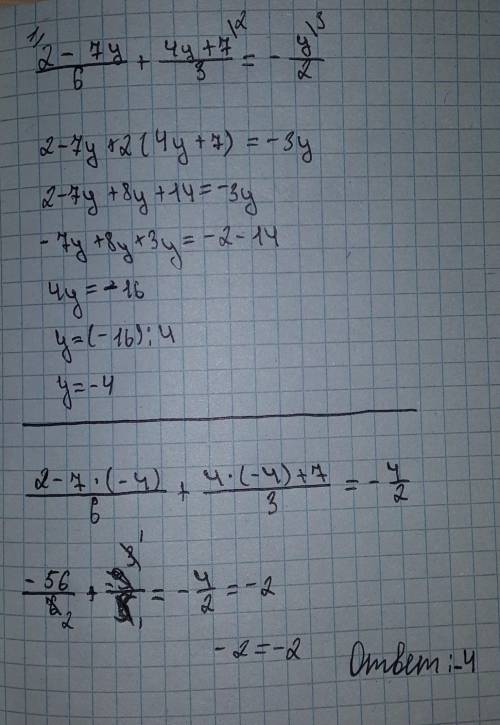 1) (2 - 7y)/6 + (4y + 7)/3 \2 = - y/2 \3
2 - 7y + 2(4y + 7) = -3y
2 - 7y + 8y + 14 = -3y
- 7y + 8y + 3y = -2 - 14
4y = -16
y = (-16) : 4
y = -4
(2 - 7 · (-4))/6 + (4 · (-4) + 7)/3 = - 4/2
= - 4/2 = -2
-2 = -2
Ответ: -4